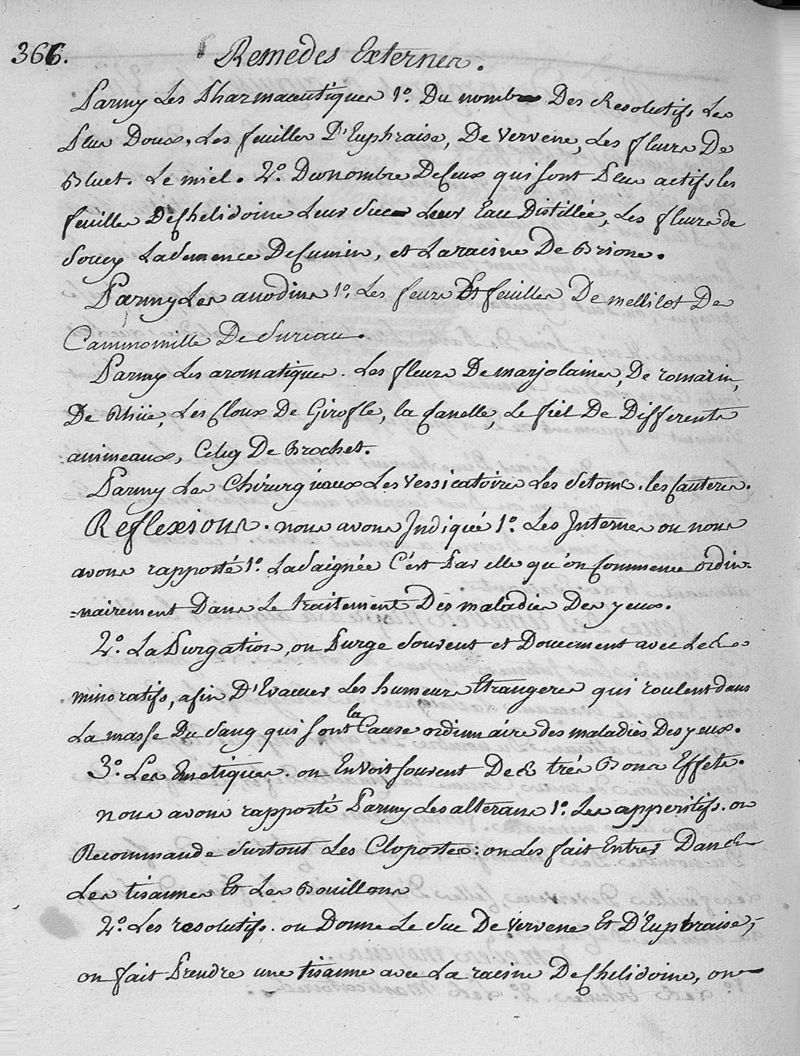 366.
Remedes Externes.
Parmy Les Pharmaceutiques 1º. Du nombre Des Resolutifs Les
Plus Doux, Les feuilles D'Euphraise, De Vervene, Les fleurs De
Bluet. Le miel. 2º. Du nombre De Ceux qui sont Plus actifs les
feuilles De Chelidoine Leur Suc Leur Eau Distillée, Les fleurs de
Soucy La Semence De Cumin, et La racine De Brione.
Parmy Les anodins 1º. Les feurs Et feuilles De mellilot De
Cammomille De Sureau.
Parmy Les aromatiques. Les fleurs De marjolaines, De romarin,
De Rhüe, Les Cloux De Girofle, la Canelle, Le fiel De Differents
animeaux, Celuy De Brochet.
Parmy Les Chirurgicaux Les Vessicatoires Les Setons. les Cauteres.
Reflexions. nous avons Indiqué 1º. Les Internes ou nous
avons rapporté 1º. La Saignée C'est Par elle qu'on Commence ordin-
=nairement Dans Le traitement Des maladies Des yeux.
2º. La Purgation, on Purge Souvent et Doucement avec Les
minoratifs, afin D'Evacuer Les humeurs Etrangeres qui roulent dans
La masse Du Sang qui Sont la Cause ordinnaire des maladies Des yeux.
3º. Les Emetiques. on En Voit Souvent De trés Bons Effets.
nous avons rapporté Parmy Les alterans 1º. Les apperitifs. on
Recommande Surtout Les Cloportes: on Les fait Entrer Dans
Les tisannes Et Les Bouillons
2º. Les resolutifs. on Donne Le Suc De Vervene Et D'Euphraise,
on fait Prendre une tisanne avec La racine De Chelidoine, on